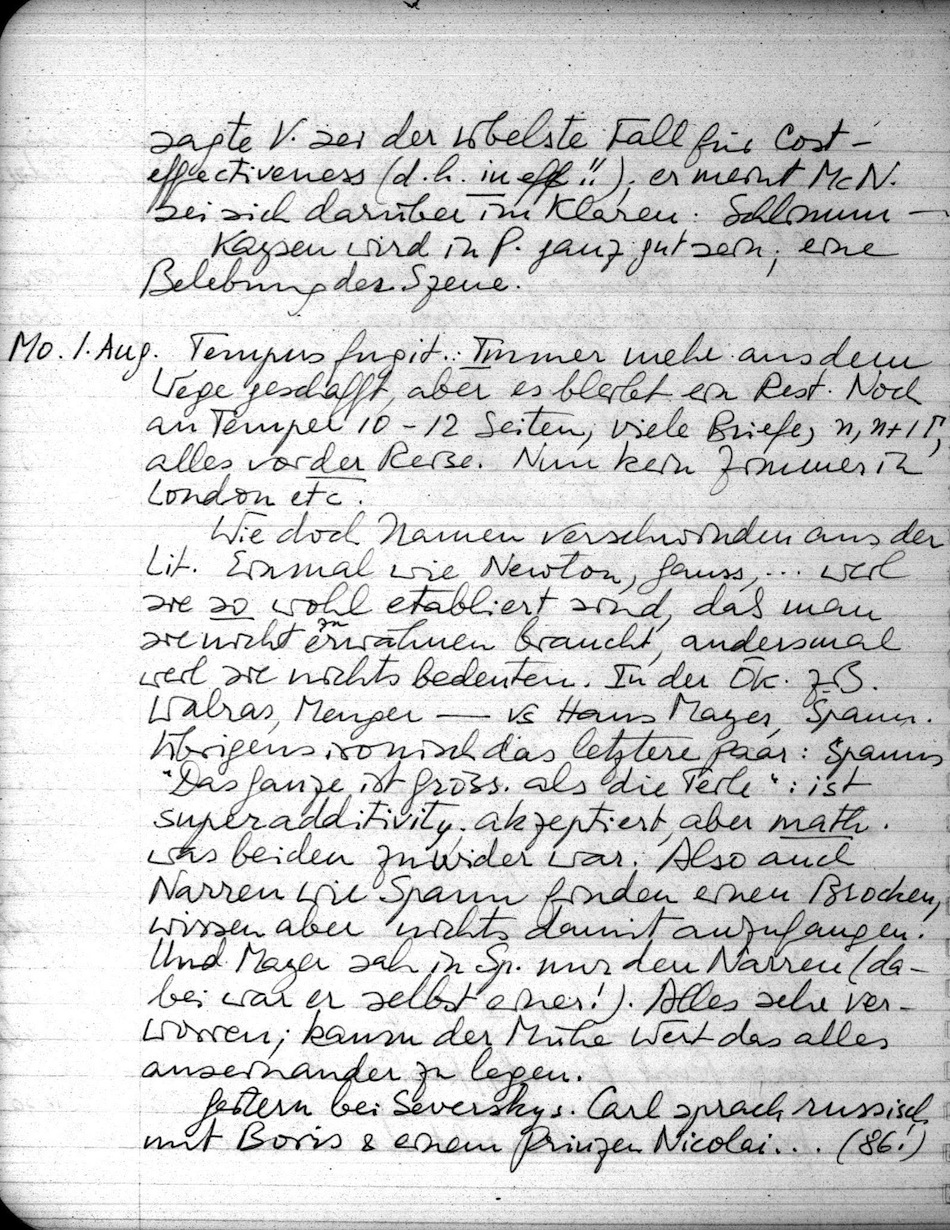 sagte V. sei der übelste Fall für Cost-
effectiveness (d.h. in eff!!), er meint McN.
sei sich darüber im Klaren. Schlimm —
Kaysen wird in P. ganz gut sein; eine
Belebung der Szene.
Mo. 1. Aug. Tempus fugit. Immer mehr aus dem
Wege geschafft, aber es bleibt ein Rest. Noch
an Tempel 10-12 Seiten, viele Briefe, n, n+1 Γ,
alles vor der Reise. Nun kein Zimmer in
London etc.
Wie doch Namen verschwinden aus der
Lit. Einmal wie Newton, Gauss, ... weil
sie so wohl etabliert sind, daß man
sie nicht zu erwähnen braucht, andersmal
weil sie nichts bedeuten. In der Ök. z.B.
Walras, Menger — vs Hans Mayer, Spann.
Übrigens ironisch das letztere Paar: Spanns
"Das Ganze ist gröss. als die Teile": ist
superadditivity. akzeptiert, aber math.
was beiden zuwider war. Also auch
Narren wie Spann finden einen Brocken,
wissen aber nichts damit anzufangen.
Und Mayer sah in Sp. nur den Narren (da-
bei war er selbst einer!). Alles sehr ver-
worren; kaum der Mühe wert das alles
auseinander zu legen.
Gestern bei Severskys. Carl sprach russisch
mit Boris & einem Prinzen Nicolai... (86!)